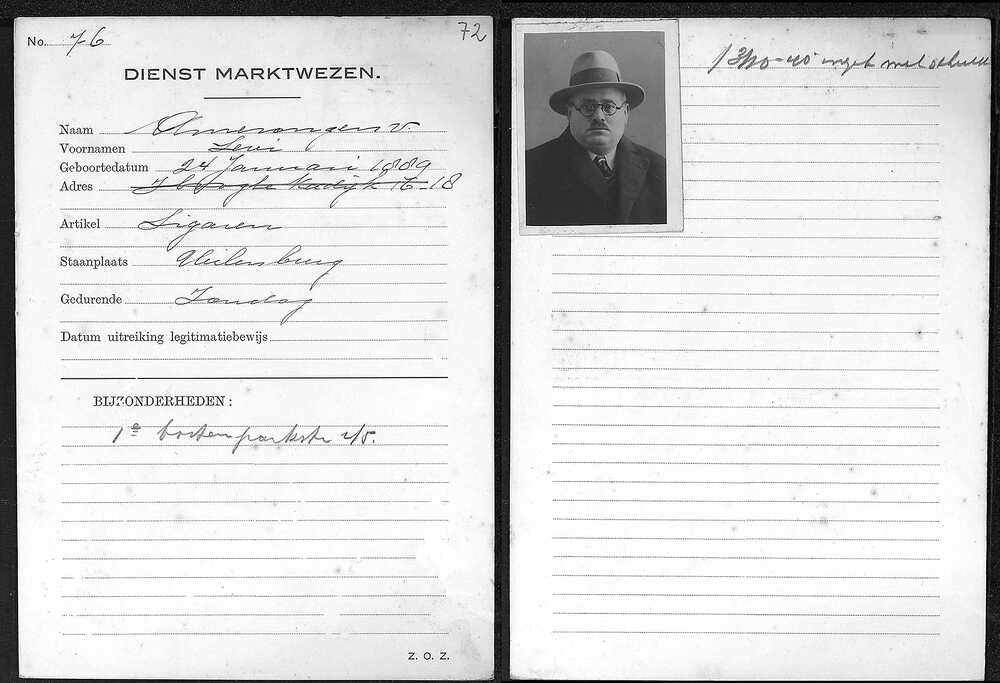 No. 76
72
DIENST MARKTWEZEN.
Naam Amerongen v.
Voornamen Levi
Geboortedatum 24 Januari 1889
Adres Hoogte Kadijk 16-18
Artikel Sigaren
Staanplaats Uilenburg
Gedurende Zondag
Datum uitreiking legitimatiebewijs
BIJZONDERHEDEN:
1e
Z. O. Z.